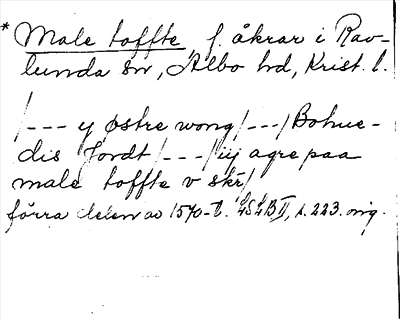 * Male toffte, f. åkrar i Rav-
lunda sn, Albo hd, Krist. l.
/--- y østre wong/---/Bohue-
dis Jordt/---/iij agre paa
male toffte v skr/
förra delen av 1570-t. LSLB II, s. 223. orig.